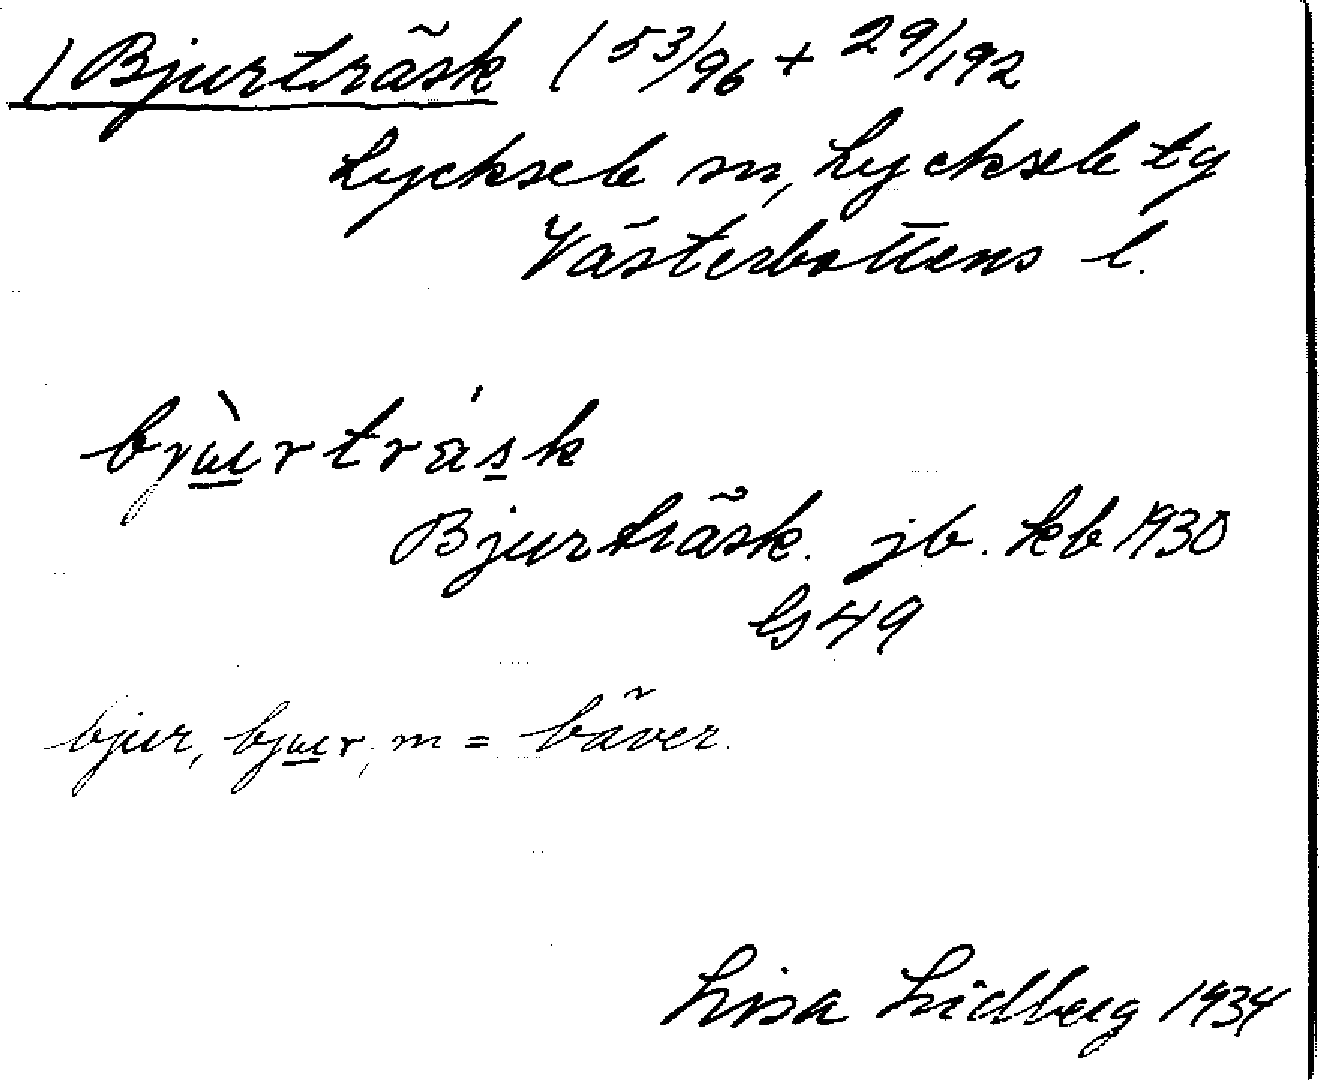 /Bjurträsk (53/96 + 29/192
Lycksele sn, Lycksele tg
Västerbottens l.
bjùrtrásk
Bjurträsk. jb. kb 1930
Gs 49
bjur, bjur, m = bäver.
Lisa Lidberg 1934